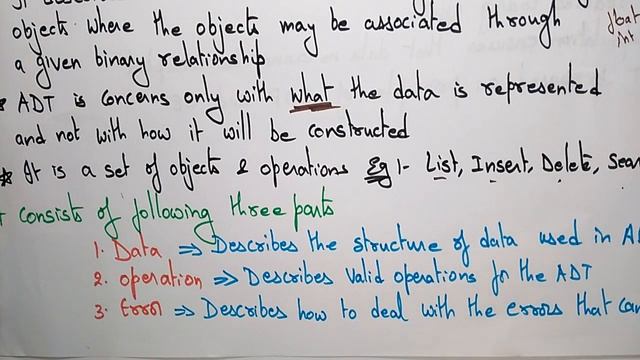 objects where the objects may be associated through
float
a given binary relationship
int
* ADT is concerns only with what the data is represented
and not with how it will be constructed
* It is a set of objects & operations Eg :- List, Insert, Delete, Sear
consists of following three parts
1. Data => Describes the structure of data used in A
2. operation => Describes Valid operations for the ADT
3. Error => Describes how to deal with the errors that can